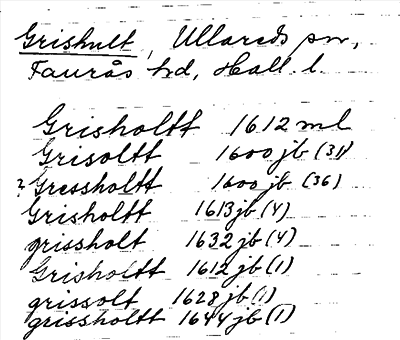 Grishult, Ullareds sn,
Faurås hd, Hall. l.
Grisholtt 1612 ml
Grisoltt 1600 jb (31)
? Gressholtt 1600 jb (36)
Grisholtt 1613 jb (4)
grissholt 1632 jb (4)
Grisholtt 1612 jb (1)
grissolt 1628 jb (1)
grissholtt 1644 jb (1)